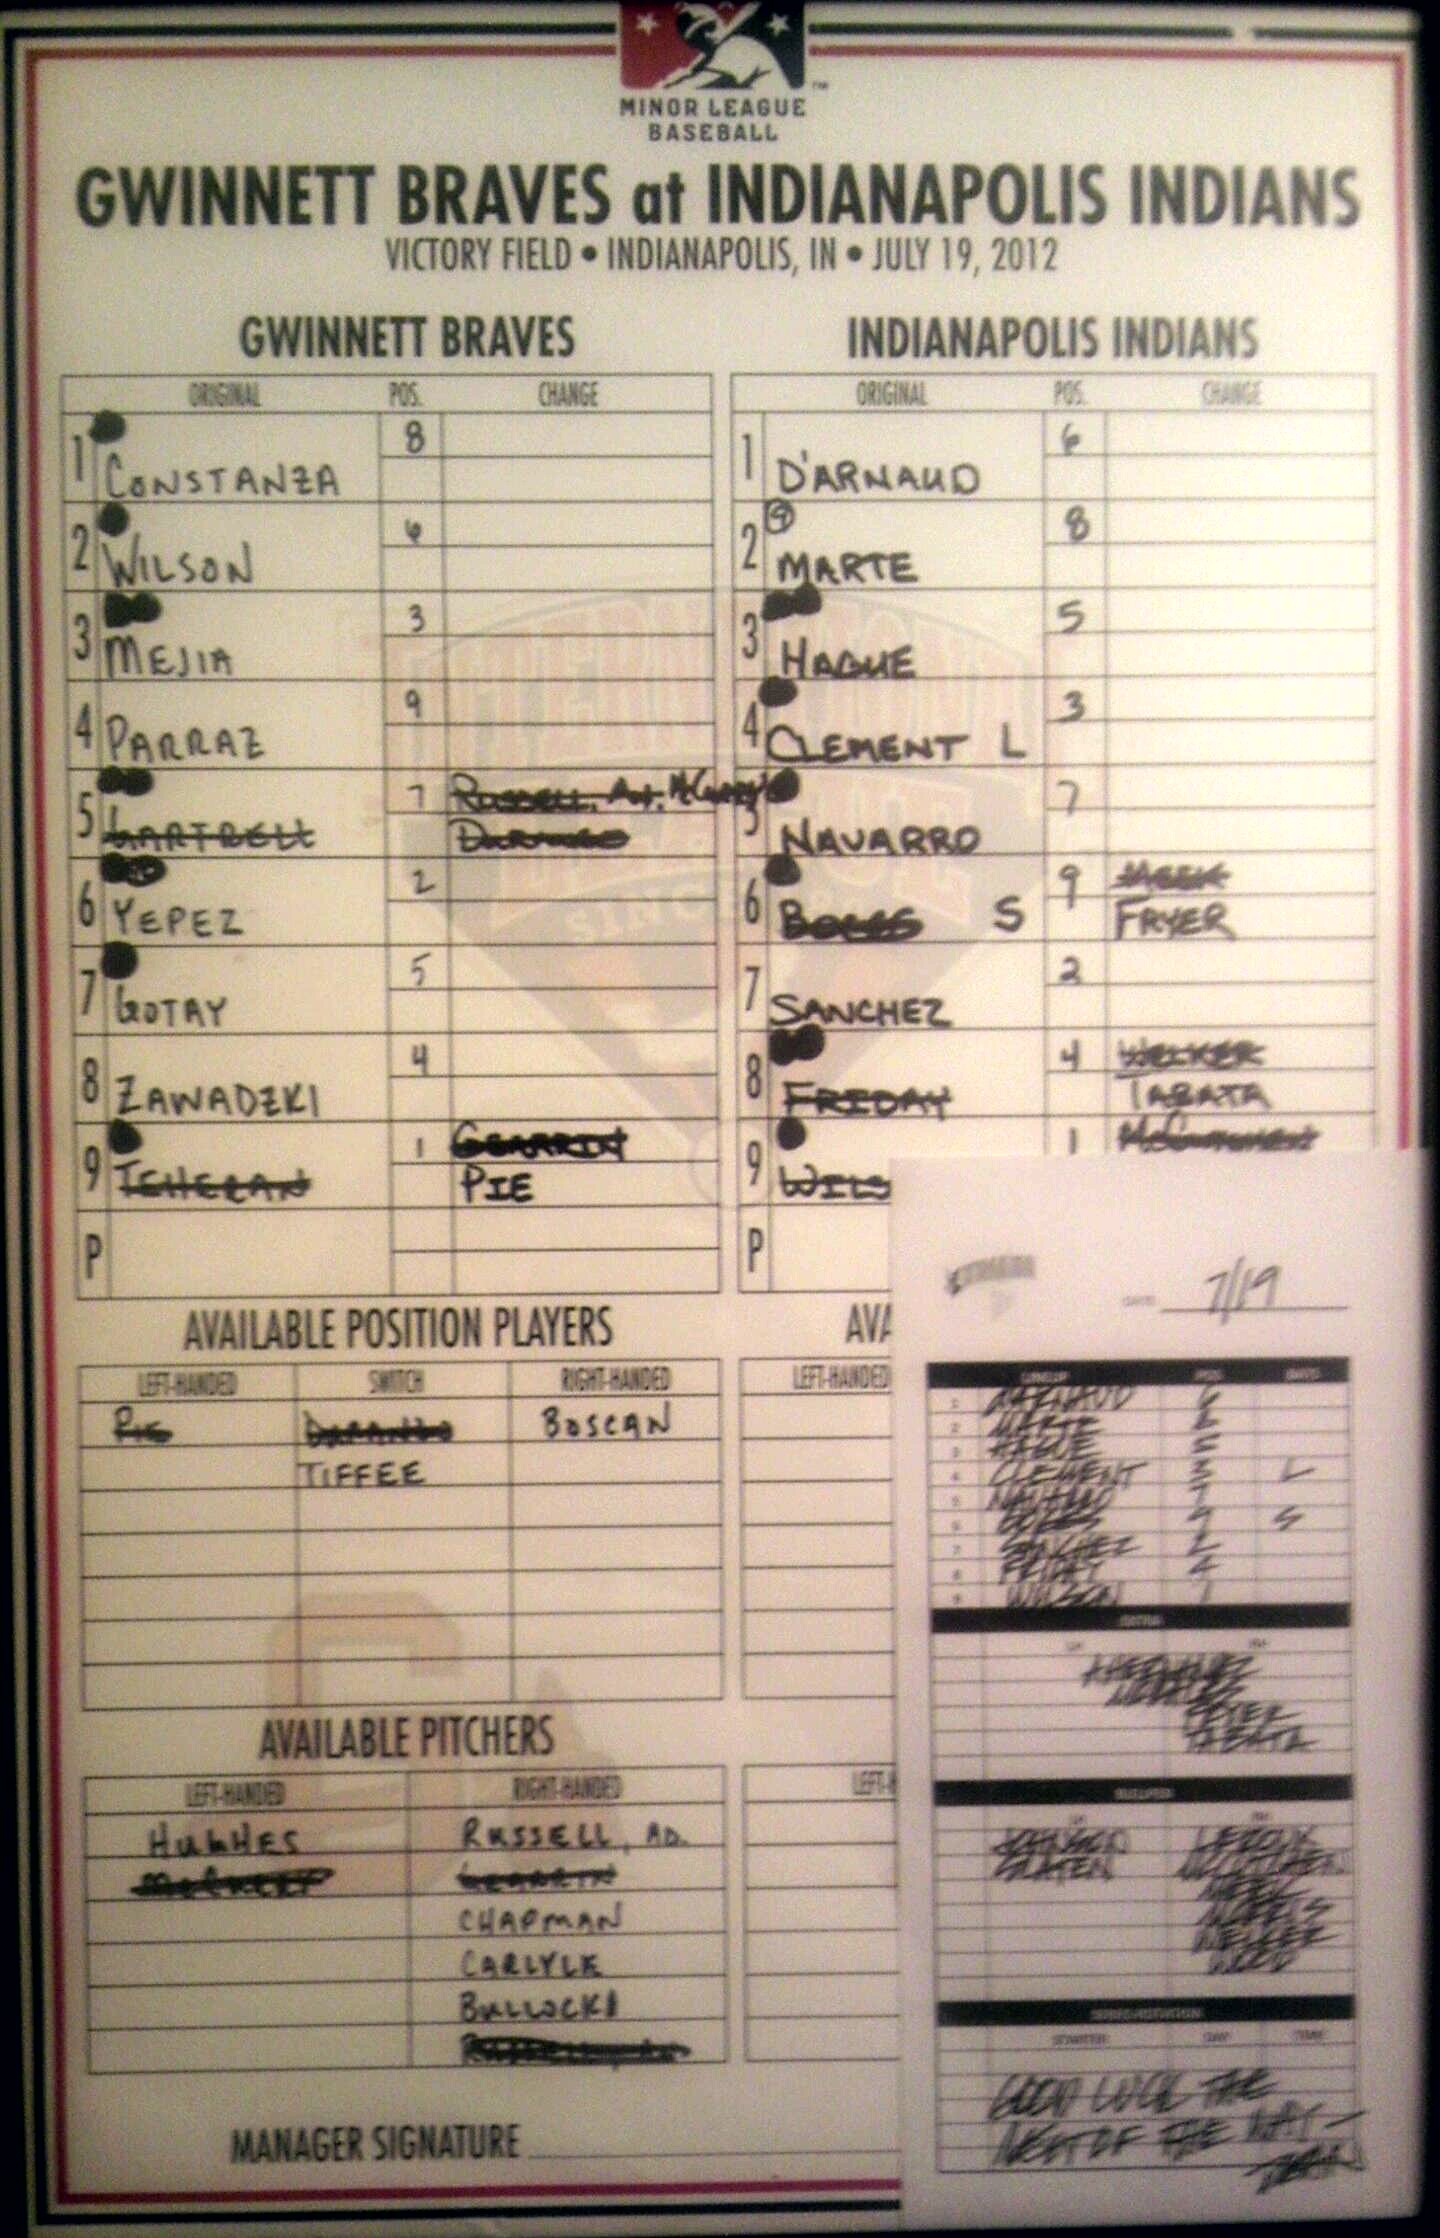 MINOR LEAGUE
BASEBALL
GWINNETT BRAVES at INDIANAPOLIS INDIANS
VICTORY FIELD • INDIANAPOLIS, IN • JULY 19, 2012
GWINNETT BRAVES
ORIGINAL POS. CHANGE
1 CONSTANZA 8
2 WILSON 6
3 MEJIA 3
4 PARRAZ 9
5 GARTRELL 7 RUSSELL, AD.
DURANGO
6 YEPEZ 2
7 GOTAY 5
8 ZAWADZKI 4
9 TEHERAN 1 GEARRIN
PIE
P
INDIANAPOLIS INDIANS
ORIGINAL POS. CHANGE
1 D'ARNAUD 6
2 MARTE 8
3 HAGUE 5
4 CLEMENT L 3
5 NAVARRO 7
6 BOGGS S 9 MEEK
FRYER
7 SANCHEZ 2
8 FRIDAY 4 WELKER
TABATA
9 WILS 1 McCUTCHEN
P
AVAILABLE POSITION PLAYERS
LEFT-HANDED SWITCH RIGHT-HANDED
PIE DURANGO BOSCAN
TIFFEE
AVAILABLE PITCHERS
LEFT-HANDED RIGHT-HANDED
HUGHES RUSSELL, AD.
GEARRIN
CHAPMAN
CARLYLE
BULLOCK
MANAGER SIGNATURE
AVA
LEFT-HANDED
LEFT-H
DATE 7/19
LINEUP POS
1 D'ARNAUD 6
2 MARTE
3 HAGUE 5
4 CLEMENT 3 L
5 NAVARRO 7
6 BOGGS 9 S
7 SANCHEZ 2
8 FRIDAY 4
9 WILSON 1
EXTRA
FRYER
TABATA
JOHNSON LEROUX
SLATEN McCUTCHEN
MEEK
MORRIS
WELKER
WOOD
STARTER DAY TIME
GOOD LUCK THE
REST OF THE WAY -